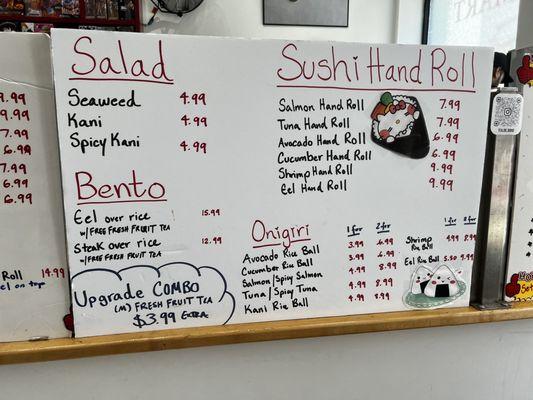 9.99
9.99
7.99
6.99
7.99
6.99
6.99
Roll 14.99
el on top
Salad
Seaweed 4.99
Kani 4.99
Spicy Kani 4.99
Bento
Eel over rice 15.99
w/FREE FRESH FRUIT TEA
Steak over rice 12.99
w/FREE FRESH FRUIT TEA
Upgrade COMBO
(M) FRESH FRUIT TEA
$3.99 EXTRA
Sushi Hand Roll
Salmon Hand Roll 7.99
Tuna Hand Roll 7.99
Avocado Hand Roll 6.99
Cucumber Hand Roll 6.99
Shrimp Hand Roll 9.99
Eel Hand Roll 9.99
Onigiri 1 for 2 for
Avocado Rice Ball 3.99 6.99
Cucumber Rice Ball 3.99 6.99
Salmon/Spicy Salmon 4.99 8.99
Tuna/Spicy Tuna 4.99 8.99
Kani Rice Ball 4.99 8.99
1 for 2 for
Shrimp 4.99 8.99
Rice Ball
Eel Rice Ball 5.50 9.99